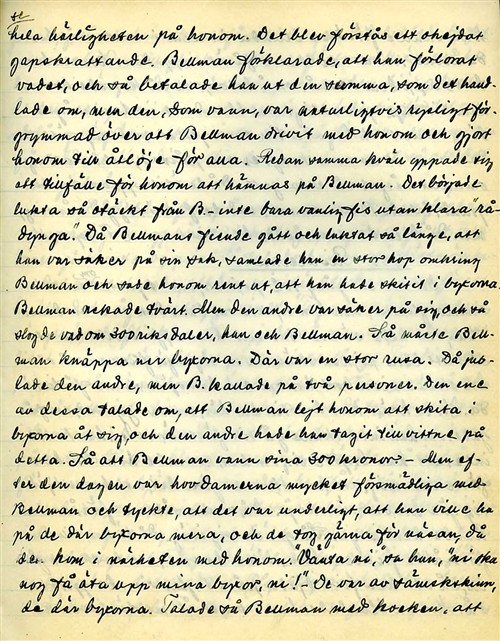 se
hela härligheten på honom. Det blev förstås ett ohejdat
gapskrattande. Bellman förklarade, att han förlorat
vadet, och så betalade han ut den summa, som det hand-
lade om, men den, som vann, var naturligtvis rysligt för-
grymmad över att Bellman drivit med honom och gjort
honom till åtlöje för alla. Redan samma kväll yppade sig
ett tillfälle för honom att hämnas på Bellman. Det började
lukta så otäckt från B. – inte bara vanlig fis utan klara "rå-
dynga". Då Bellmans fiende gått och luktat så länge, att
han var säker på sin sak, samlade han en stor hop omkring
Bellman och sade honom rent ut, att han hade skitit i byxorna.
Bellman nekade tvärt. Men den andre var säker på sig, och så
slogde vad om 300 riksdaler, han och Bellman. Så måste Bell-
man knäppa ner byxorna. Där var en stor rusa. Då jub-
lade den andre, men B. kallade på två personer. Den ene
av dessa talade om, att Bellman lejt honom att skita i
byxorna åt sig, och den andre hade han tagit till vittne på
detta. Så att Bellman vann sina 300 kronor. – Men ef-
ter den dagen var hovdamerna mycket försmädliga med
Bellman och tyckte, att det var underligt, att han ville ha
på de där byxorna mera, och de tog gärna för näsan, då
de kom i närheten med honom. "Vänta ni," sa han, "ni ska
nog få äta upp mina byxor, ni!" – De var av sämskskinn,
de där byxorna. Talade så Bellman med kocken, att